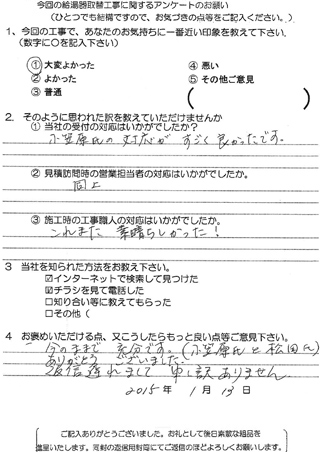 今回の給湯器取替工事に関するアンケートのお願い
(ひとつでも結構ですので、お気づきの点等をご記入ください。)
1、今回の工事で、あなたのお気持ちに一番近い印象を教えて下さい。
(数字に〇を記入下さい)
① 大変よかった ④ 悪い
② よかった ⑤ その他ご意見
③ 普通 ( )
2. そのように思われた訳を教えていただけませんか
① 当社の受付の対応はいかがでしたか?
小笠原氏の対応がすごく良かったです。
② 見積訪問時の営業担当者の対応はいかがでしたか。
同上
③ 施工時の工事職人の対応はいかがでしたか。
これまた 素晴らしかった!
3 当社を知られた方法をお教え下さい。
☑インターネットで検索して見つけた
☑チラシを見て電話した
□知り合い等に教えてもらった
□その他(
4 お褒めいただける点、又こうしたらもっと良い点等ご意見下さい。
今のままで充分です。(小笠原氏と松田氏)
ありがとうございました。
返信遅れまして申し訳ありません
2015年 1月 13日
ご記入ありがとうございました。お礼として後日素敵な粗品を
進呈いたします。同封の返信用封筒にてご返信のほどよろしくお願いします。